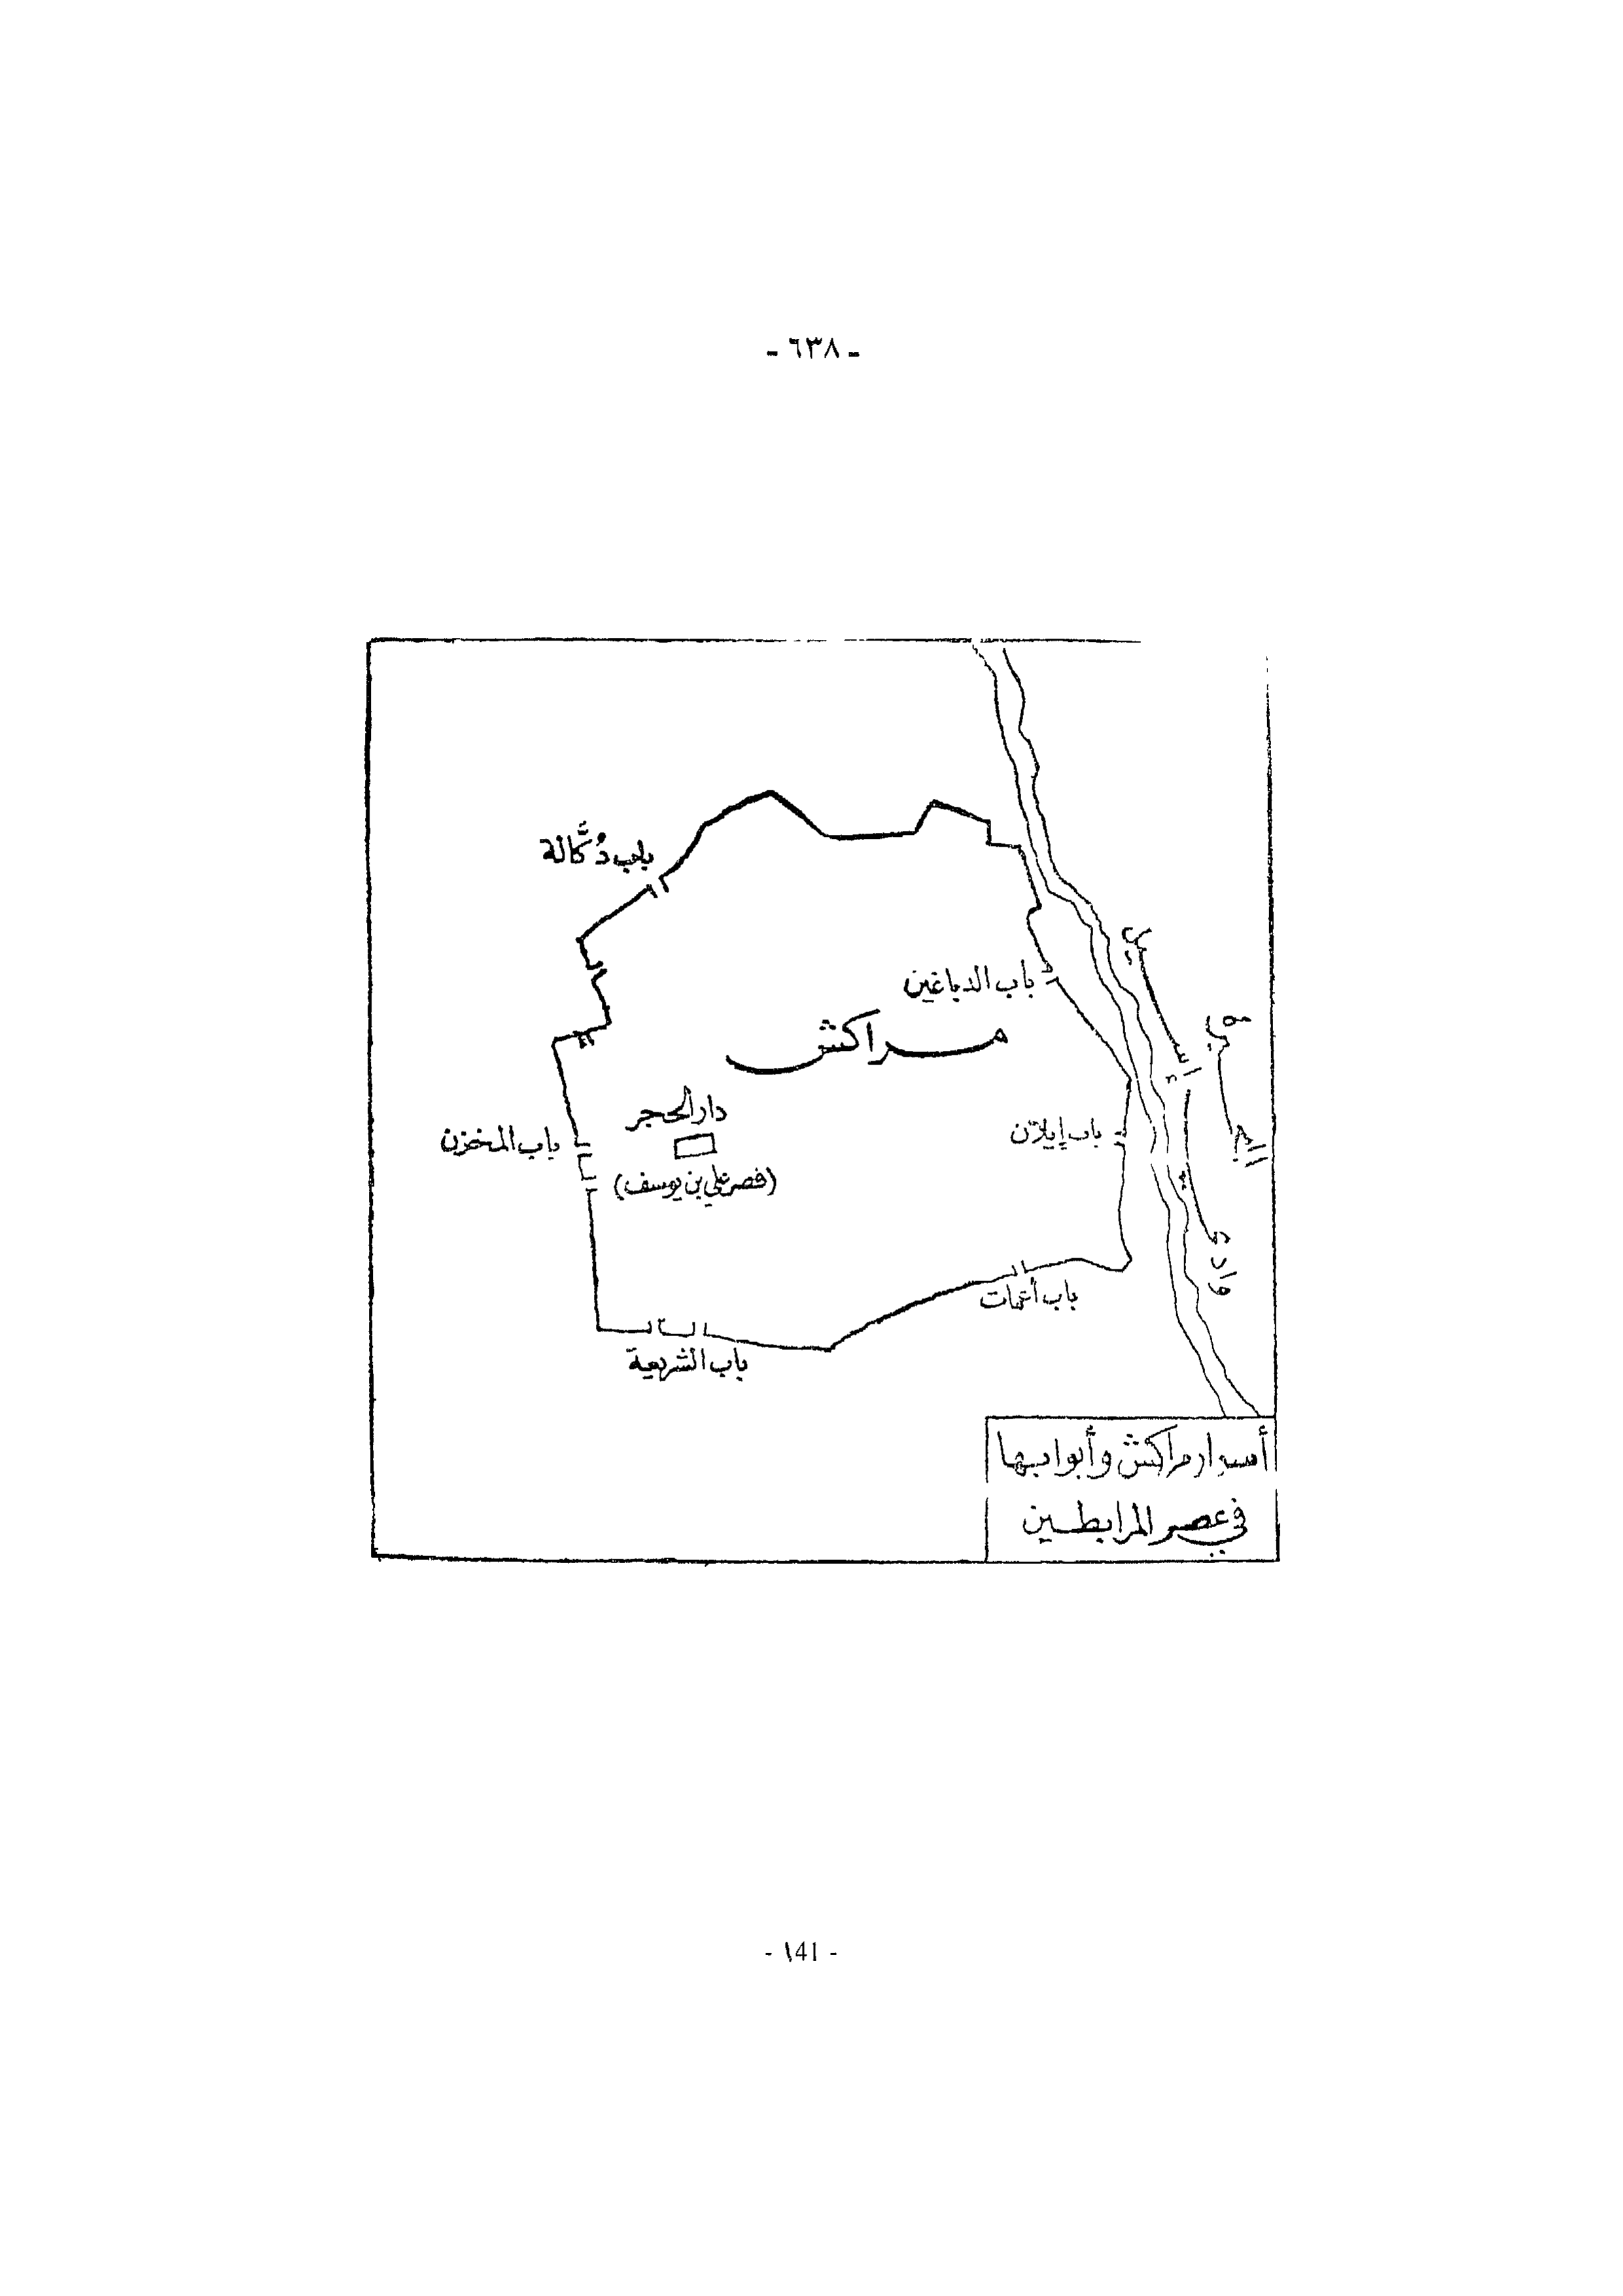 - ٦٣٨ -
باب دُكَّالة
باب الدباغين
مراكش
دار الحجر
باب المخزن
باب إيلان
(قصر علي بن يوسف)
باب أغمات
باب الشريعة
أسوار مراكش وأبوابها
في عصر المرابطين
- \41 -